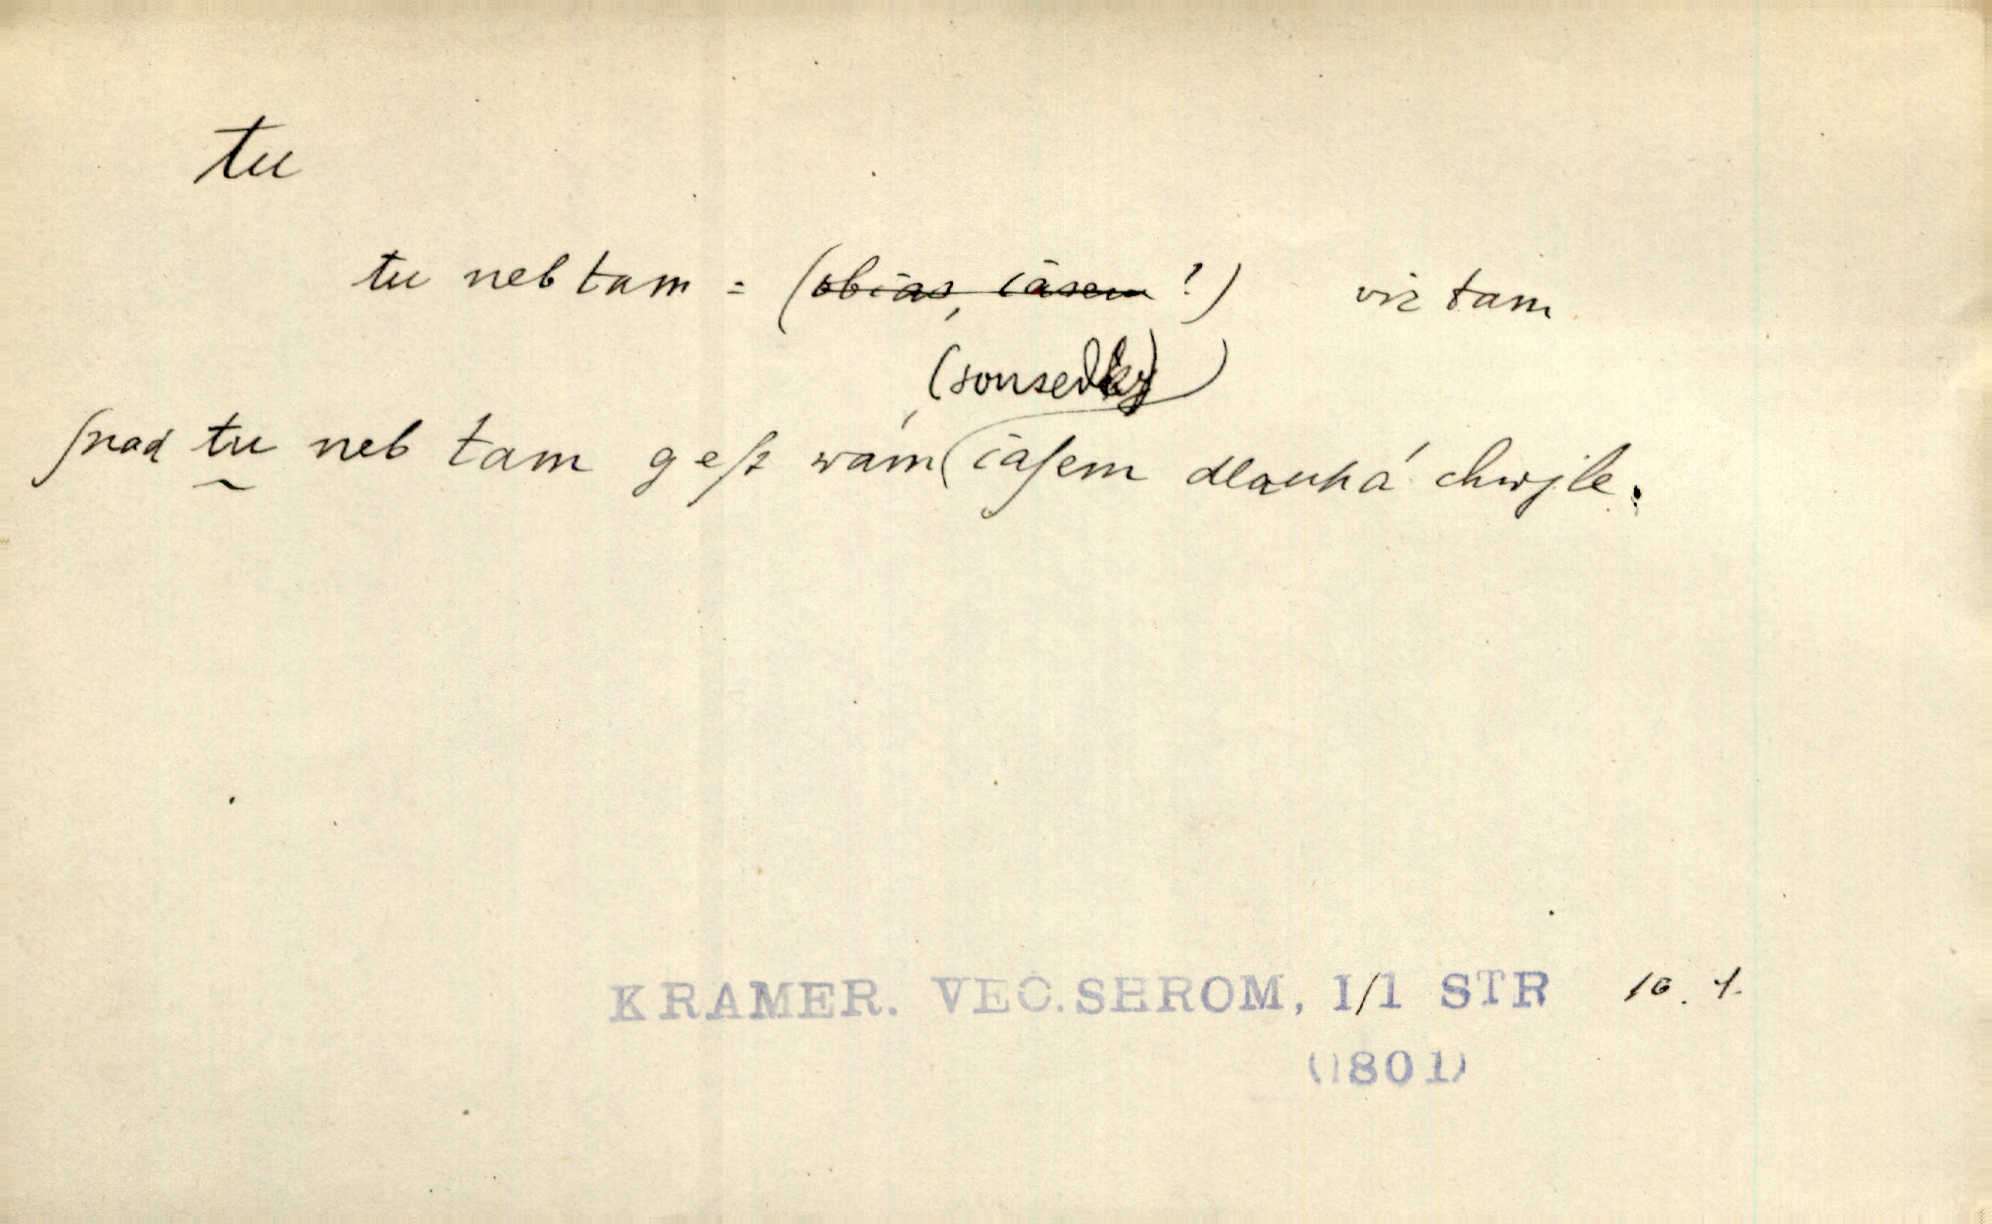 tu
tu neb tam = (občas, časem ?) viz tam
(sousedky)
ſnad tu neb tam geſt wám čaſem dlauhá chwjle.
KRAMER. VEČ.SHROM, I/1 STR 16. 1.
(1801)